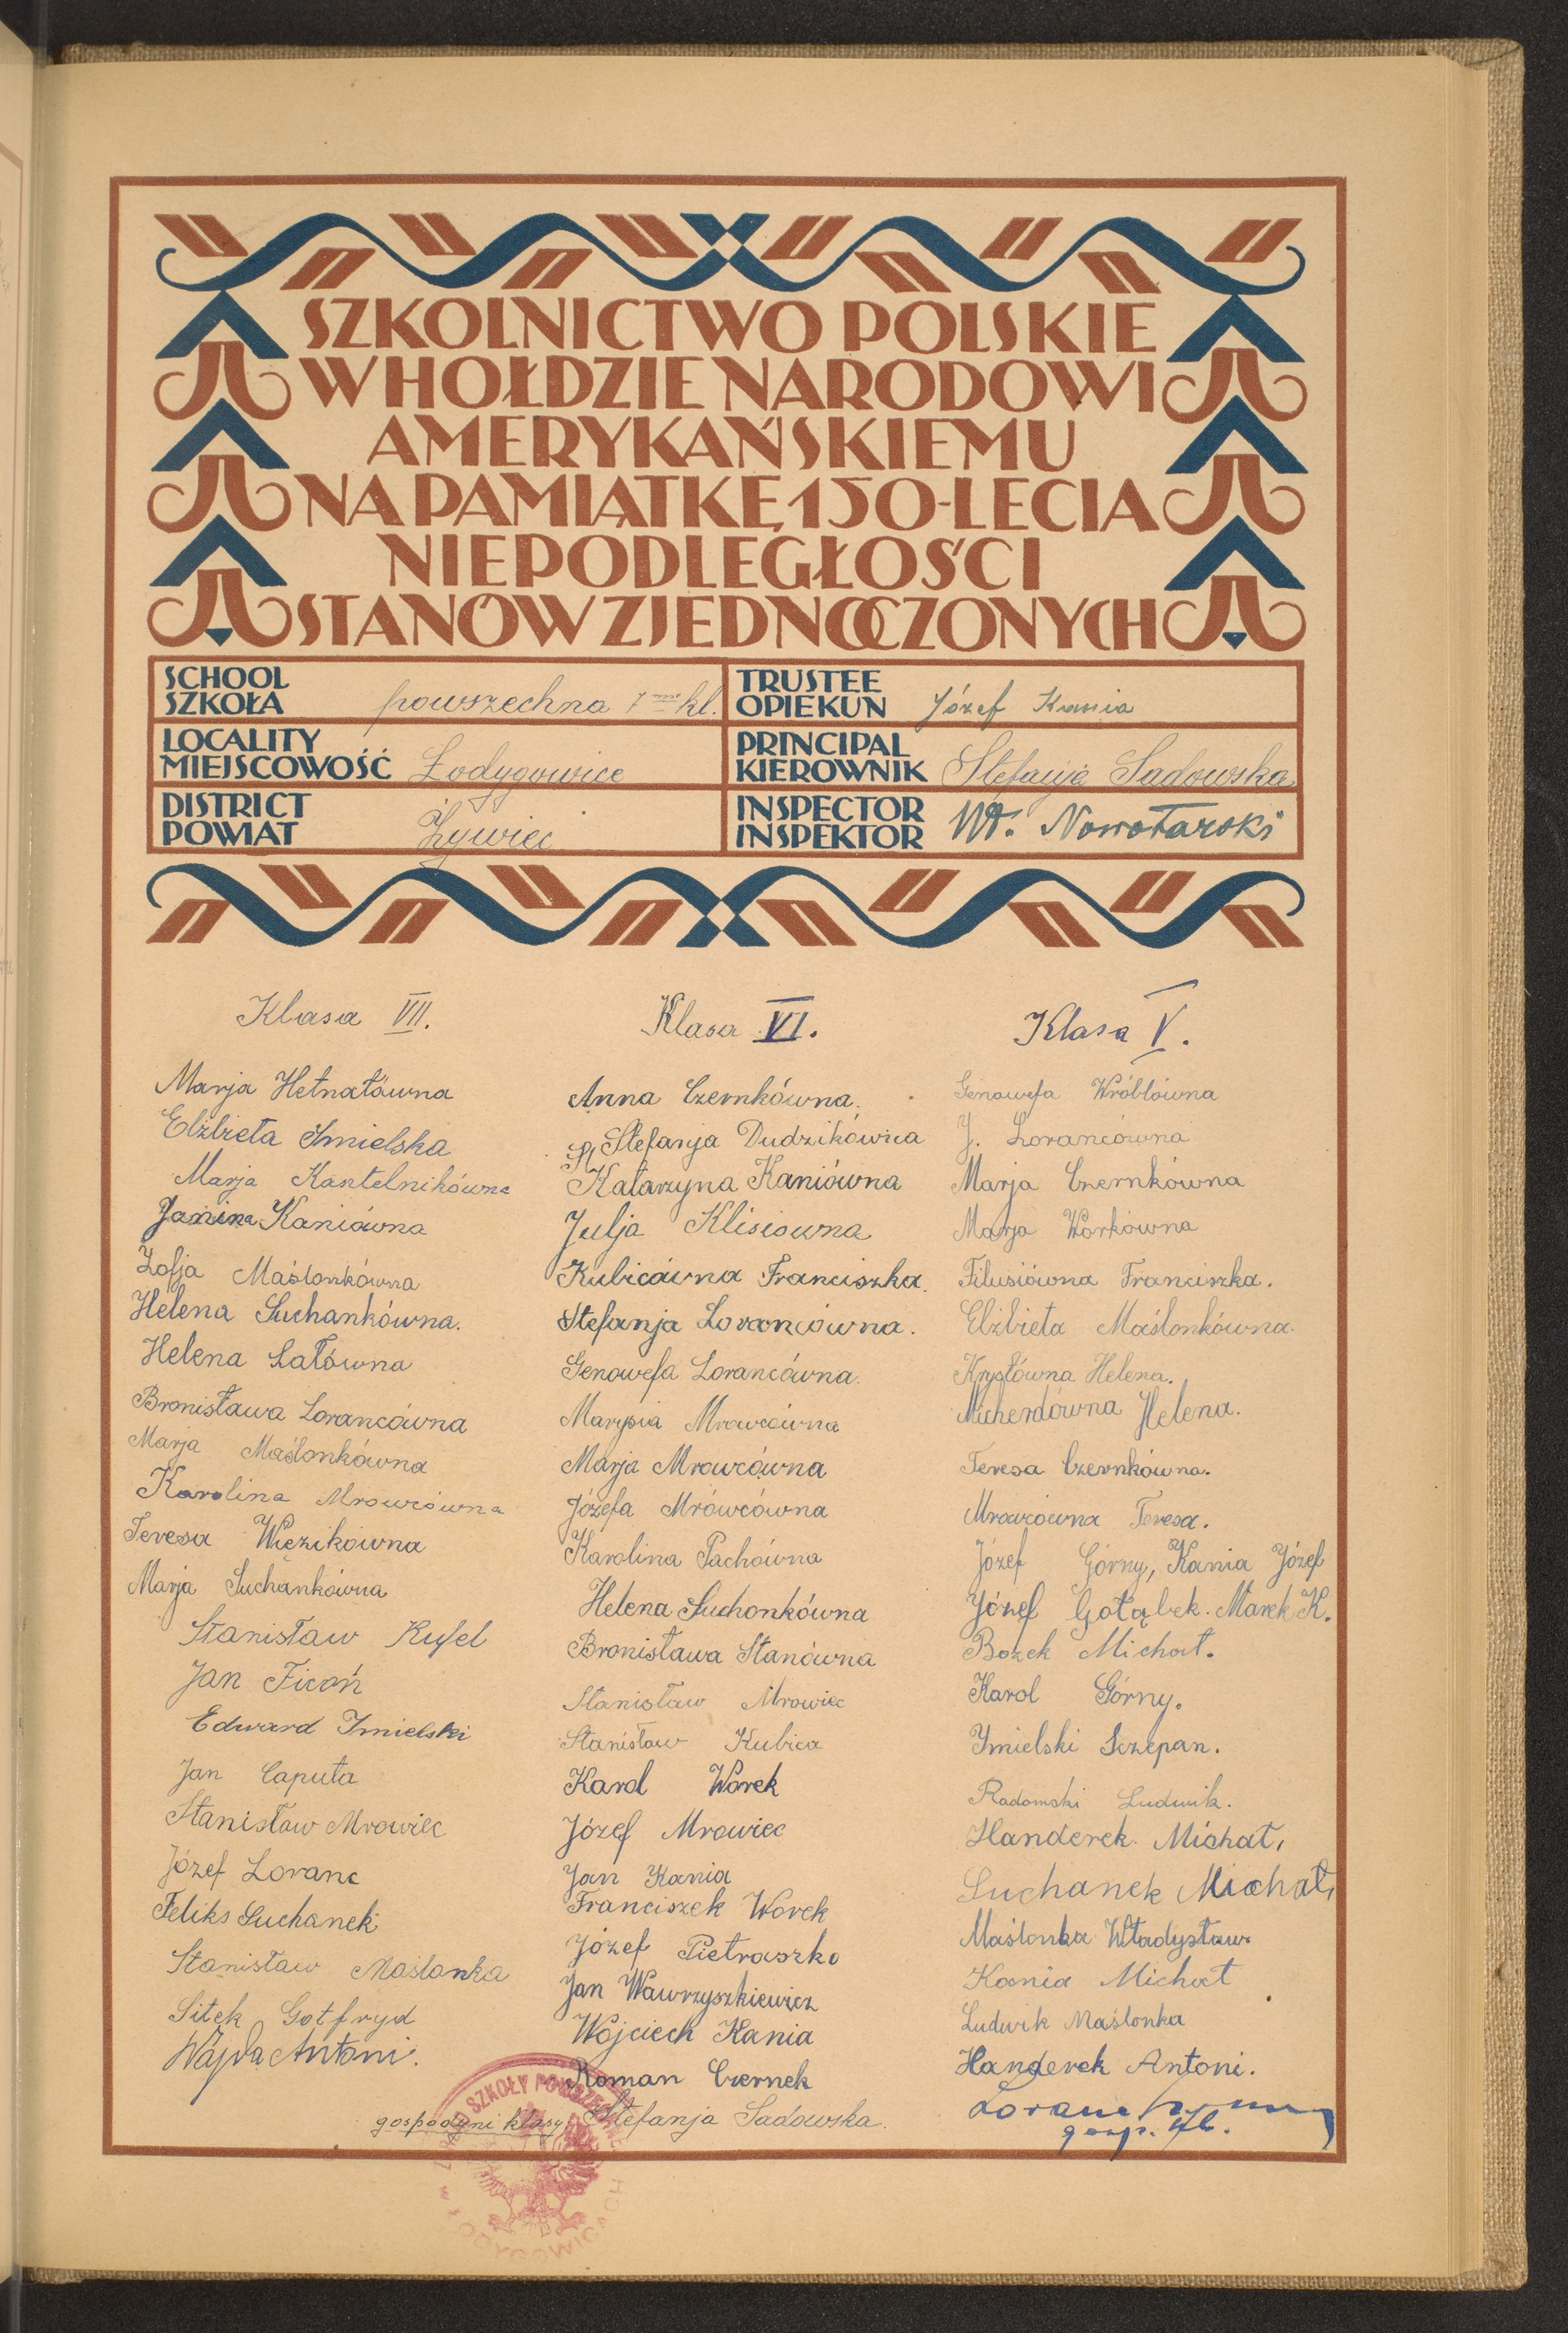 SZKOLNICTWO POLSKIE
W HOŁDZIE NARODOWI
AMERYKAŃSKIEMU
NA PAMIĄTKĘ 150-LECIA
NIEPODLEGŁOŚCI
STANÓW ZJEDNOCZONYCH
SCHOOL
SZKOŁA powszechna 7 mio kl.
TRUSTEE
OPIEKUN Józef Kania
LOCALITY
MIEJSCOWOŚĆ Łodygowice
PRINCIPAL
KIEROWNIK Stefanja Sadowska
DISTRICT
POWIAT Żywiec
INSPECTOR
INSPEKTOR Wł. Nowotarski
Klasa VII.
Marja Hetnałówna
Elżbieta Imielska
Marja Kasztelnikówna
Janina Kaniówna
Zofja Maślonkówna
Helena Suchankówna.
Helena Łatówna
Bronisława Lorancówna
Marja Maślonkówna
Karolina Mrowcówna
Teresa Więzikówna
Marja Suchankówna
Stanisław Kufel
Jan Ficoń
Edward Imielski
Jan Caputa
Stanisław Mrowiec
Józef Loranc
Feliks Suchanek
Stanisław Maślanka
Sitek Gotfryd
Wajda Antoni.
Klasa VI.
Anna Czernkówna.
St Stefanja Dudzikówna
Katarzyna Kaniówna
Julja Klisiowna
Kubicówna Franciszka.
Stefanja Lorancówna.
Genowefa Lorancówna.
Marysia Mrowcówna
Marja Mrowcówna
Józefa Mrówcówna
Karolina Pachówna
Helena Suchonkówna
Bronisława Stanówna
Stanisław Mrowiec
Stanisław Kubica
Karol Worek
Józef Mrowiec
Jan Kania
Franciszek Worek
Józef Pietraszko
Jan Wawrzyszkiewicz
Wojciech Kania
Roman Czernek
gospodyni klasy: Stefanja Sadowska.
Klasa V.
Genowefa Wróblówna
J. Lorancówna
Marja Czernkówna
Marja Workówna
Filusiówna Franciszka.
Elżbieta Maślonkówna.
Krystówna Helena.
Micherdówna Helena.
Teresa Czernkówna.
Mrowcówna Teresa.
Józef Górny, Kania Józef
Józef Gołąbek. Marek K.
Bożek Michał.
Karol Górny.
Ymielski Sczepan.
Radomski Ludwik.
Handerek Michał,
Suchanek Michał,
Maślonka Władysław
Kania Michał
Ludwik Maślonka
Handerek Antoni.
Loranc
gosp. kl.
SZKOŁY